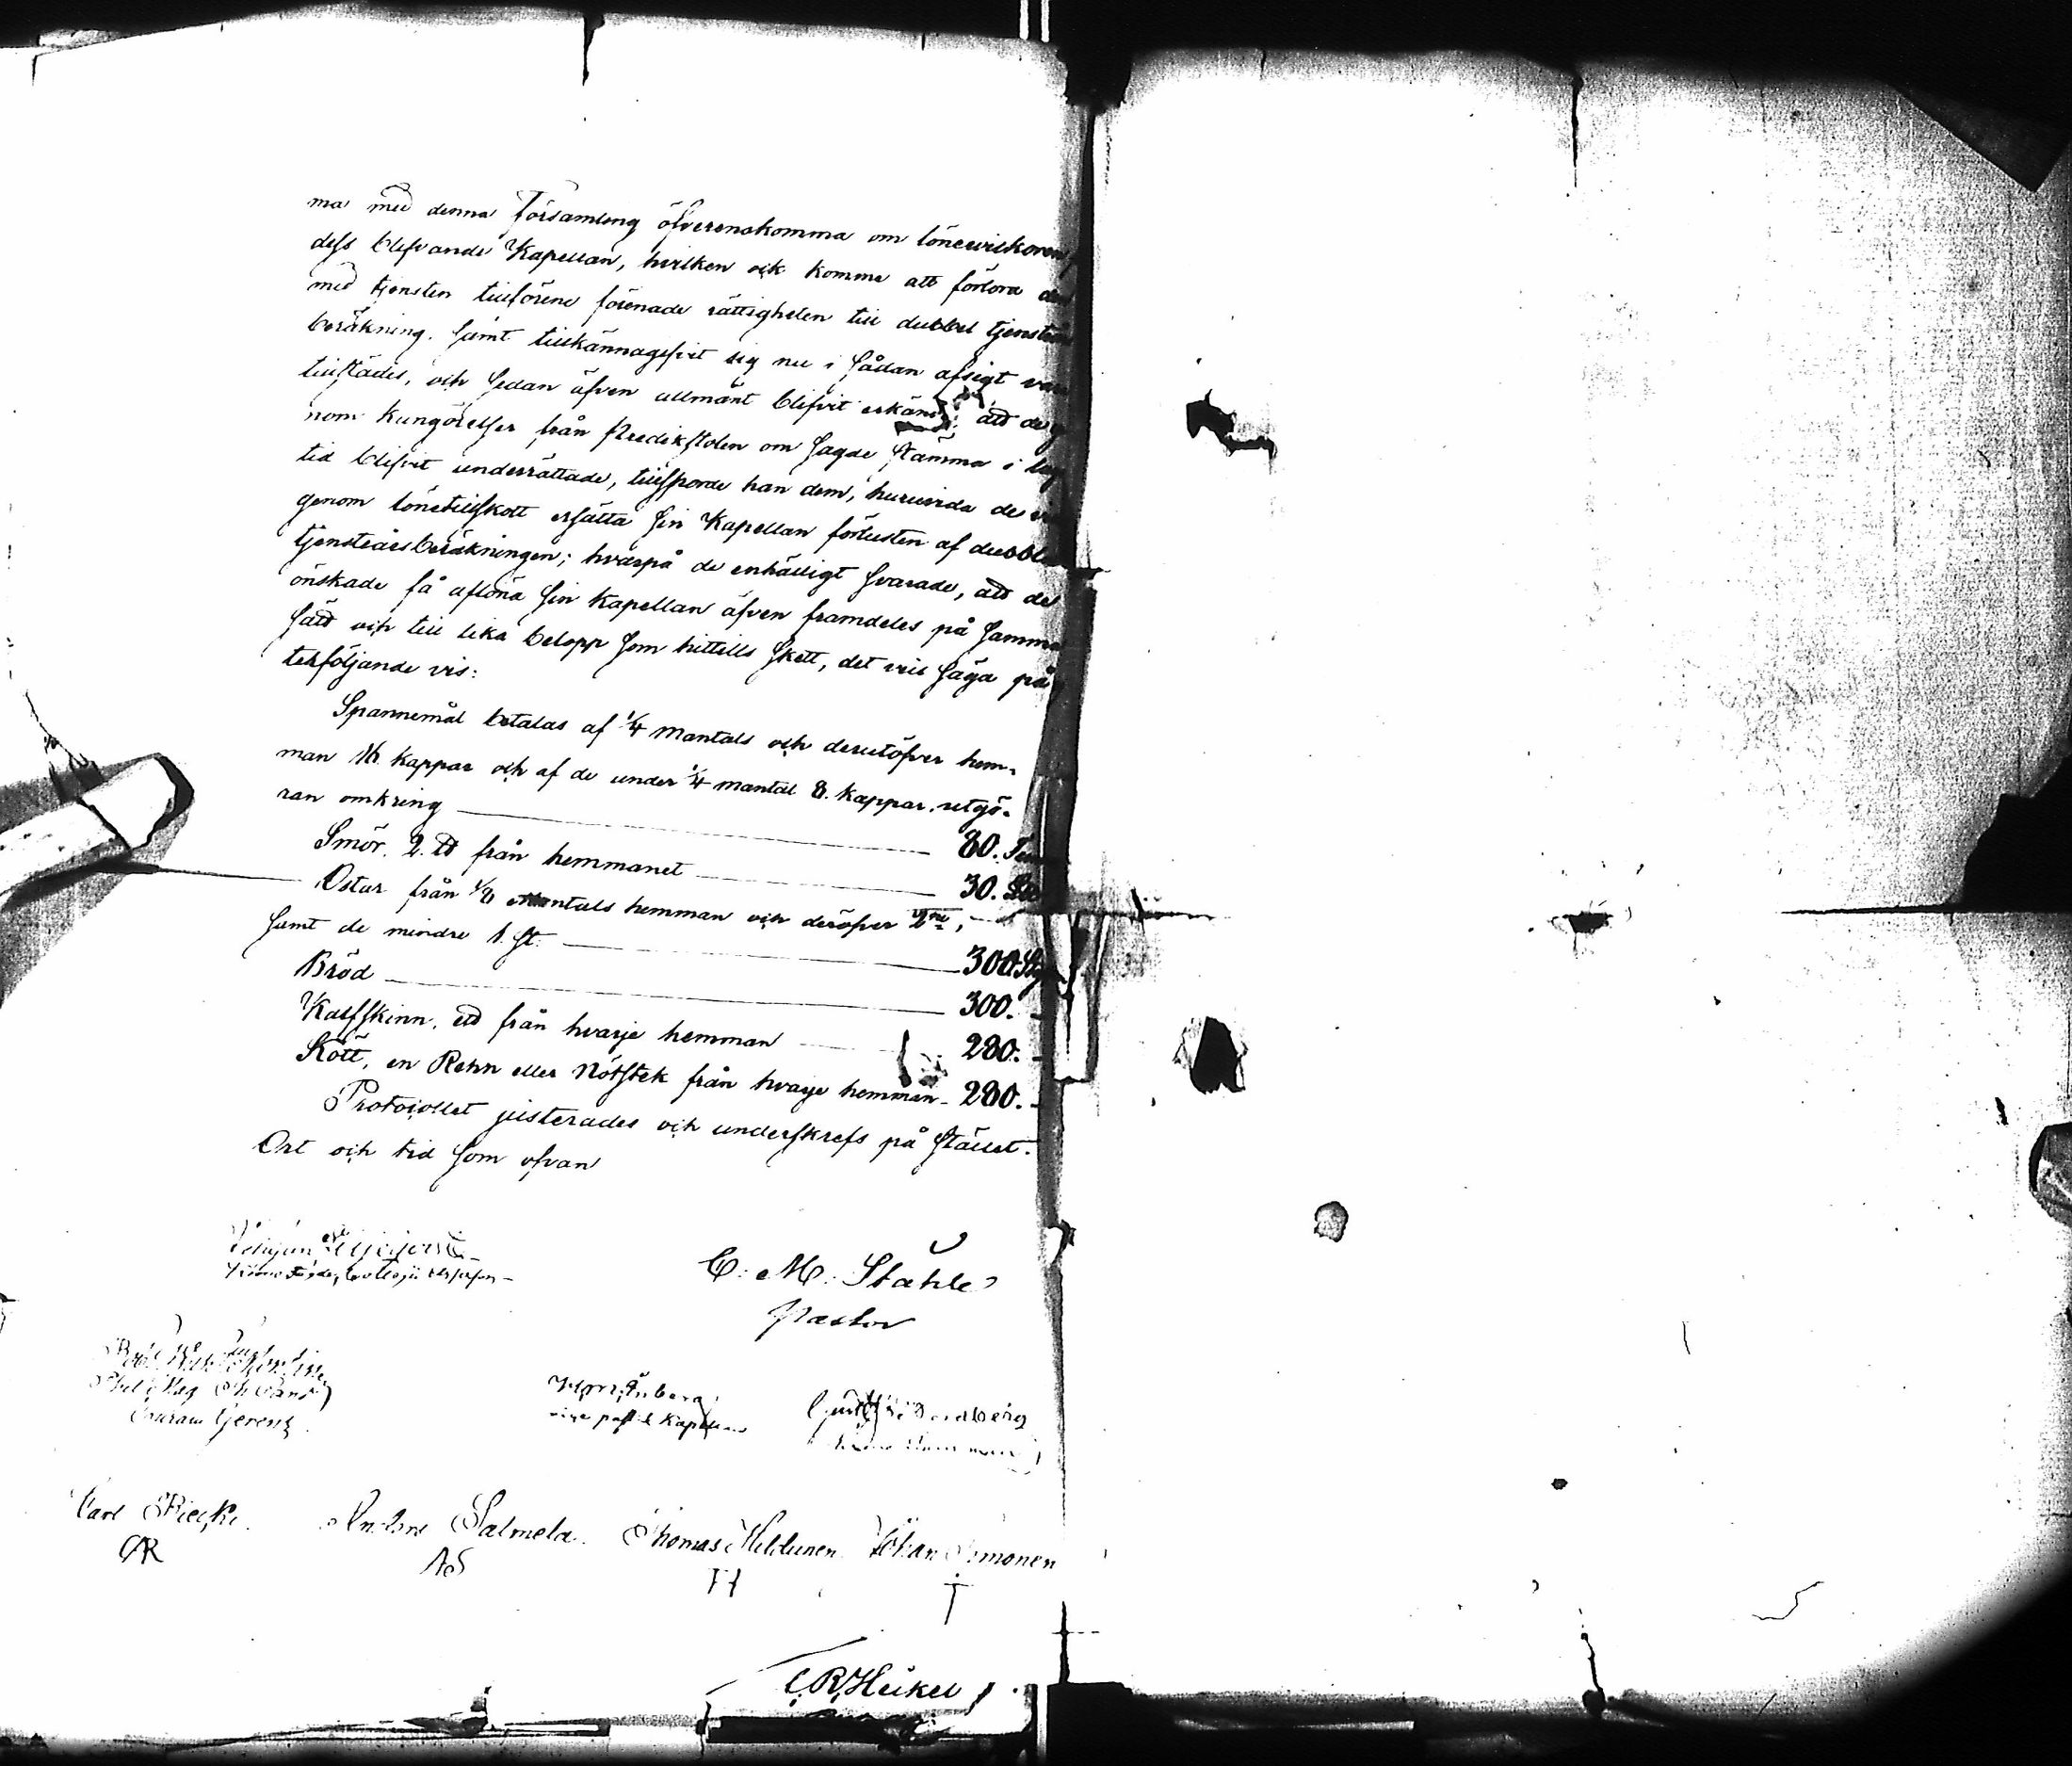 ma med denna Församling öfverenskomma om lönevilkoren
dess blifvande Kapellan, hvilken ock komme att förlora den
med tjensten tillförene förenade rättigheten till dubbel tjenste
beräkning. Samt tillkännagifvit sig nu i sådan afsigt vara
tillstädes, och sedan äfven allmänt blifvit erkändt, att de
nom kungörelser från Predikstolen om sagde stämma i lag
tid blifvit underrättade, tillsporde han dem, huruvida de
genom lönetillskott ersätta sin Kapellan förlusten af dubbla
tjensteårsberäkningen; hvarpå de enhälligt svarade, att de
önskade få aflöna sin Kapellan äfven framdeles på samma
sätt och till lika belopp som hittills skett, det vill säga på
teföljande vis:
Spannemål betalas af 1/4 mantals och derutöfver hem-
man 16 kappar och af de under 1/4 mantal 8. kappar, utgö-
ran omkring 80. Tun
Smör. 2. ℔ från hemmanet 30. L℔
Ostar från 1/8 Mantals hemman och deröfver 2ne,
samt de mindre 1. st. 300. St
Bröd 300.
Kalfskinn, ett från hvarje hemman 280.
Kött, en Rehn eller Nötstek från hvarje hemman 280.
Protocollet justerades och underskrefs på stället.
Ort och tid som ofvan
C. M. Ståhle
Pastor
vice past. & Kapellan
Carl Riecki. Anders Salmela. Thomas Hiltunen Johan Simonen
CR AS TH
C R Heikel